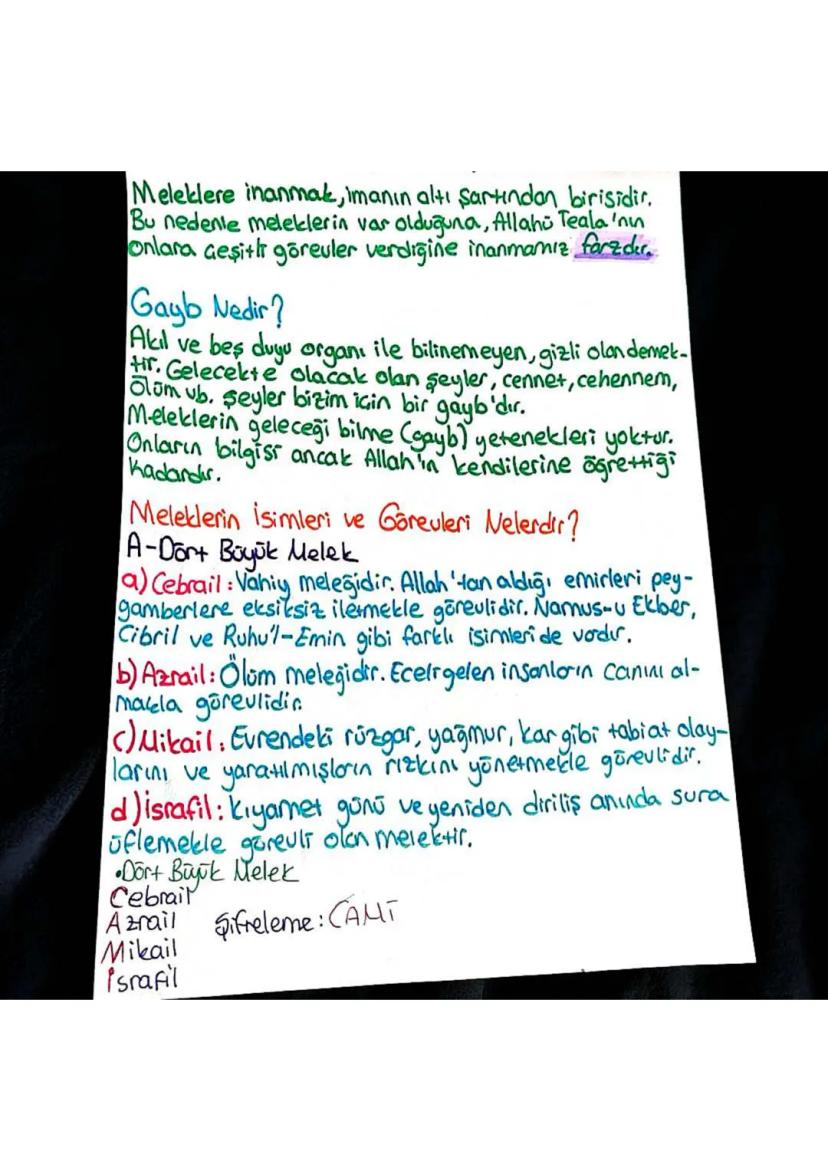 Meleklere inanmak, imanın altı şartından birisidir.
Bu nedenle meleklerin var olduğuna, Allahü Teala'nın
onlara çeşitli görevler verdiğine inanmamız farzdır.
Gayb Nedir?
Akıl ve beş duyu organı ile bilinemeyen, gizli olan demek-
tir. Gelecekte olacak olan şeyler, cennet, cehennem,
Ölüm vb. şeyler bizim için bir gayb'dır.
Meleklerin geleceği bilme (gayb) yetenekleri yoktur.
Onların bilgisi ancak Allah'ın kendilerine öğrettiği
kadardır.
Meleklerin İsimleri ve Görevleri Nelerdir?
A-Dört Büyük Melek
a) Cebrail: Vahiy meleğidir. Allah'tan aldığı emirleri pey-
gamberlere eksiksiz iletmekle görevlidir. Namus-u Ekber,
Cibril ve Ruhu'l-Emin gibi farklı isimleri de vardır.
b) Azrail: Ölüm meleğidir. Eceli gelen insanların canını al-
makla görevlidir.
c) Mikail: Evrendeki rüzgar, yağmur, kar gibi tabiat olay-
larını ve yaratılmışların rızkını yönetmekle görevlidir.
d) İsrafil: kıyamet günü ve yeniden diriliş anında sura
üflemekle görevli olan melektir.
•Dört Büyük Melek
Cebrail
Azrail Şifreleme: CAMİ
Mikail
İsrafil